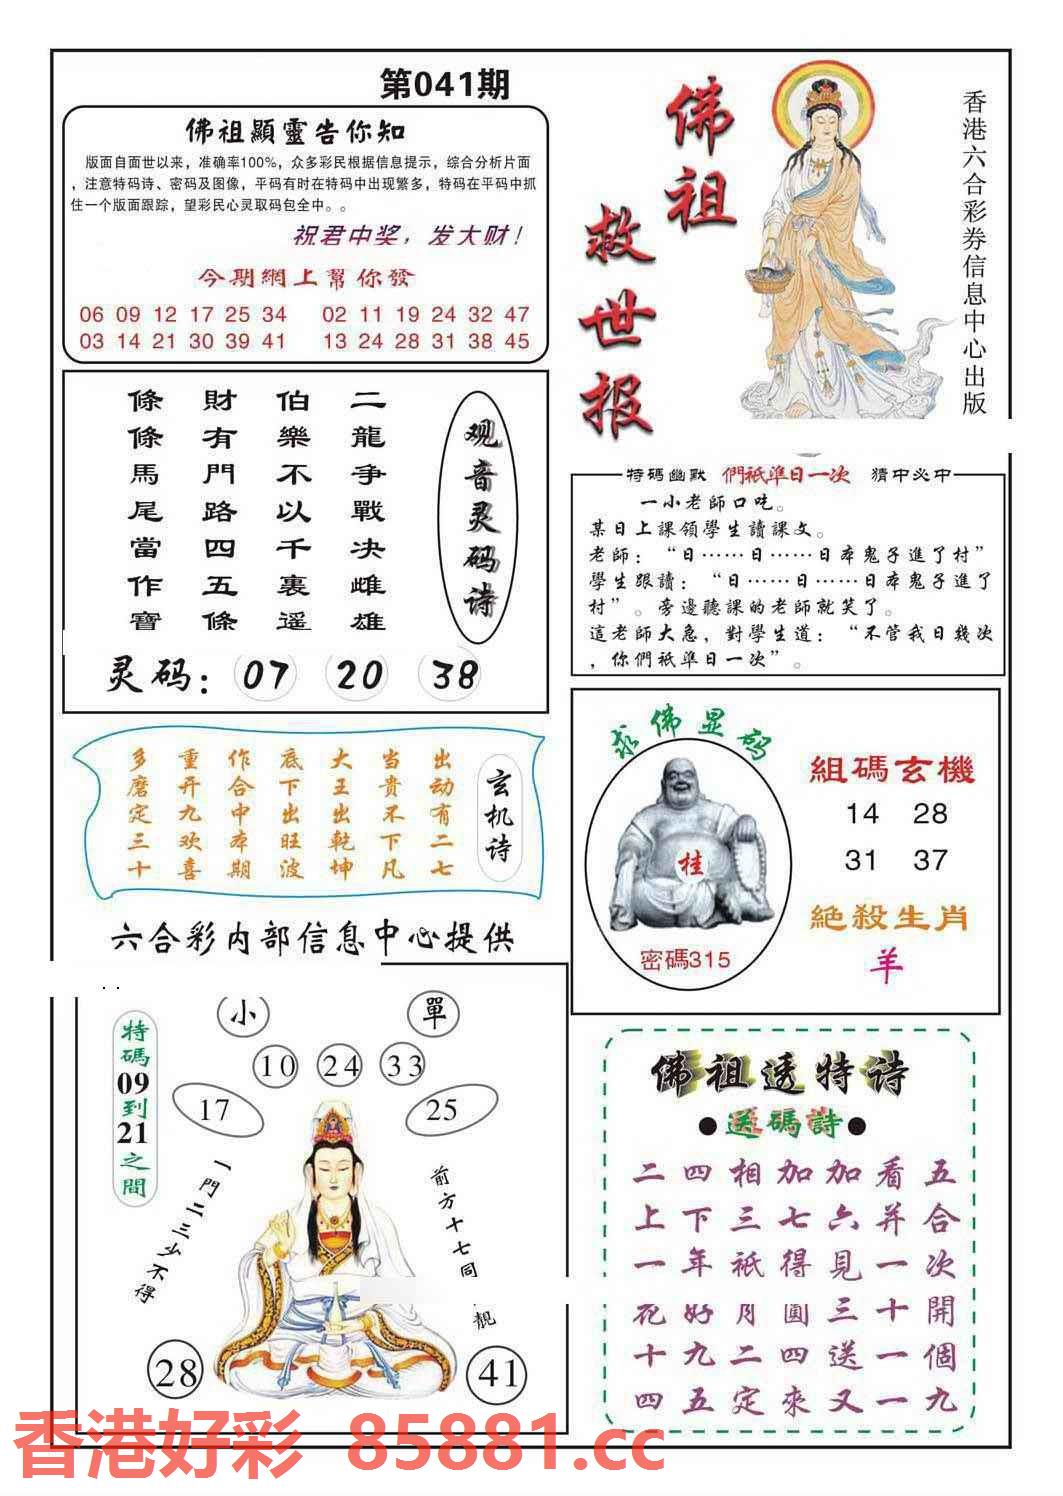 第041期
佛祖顯靈告你知
版面自面世以来，准确率100%，众多彩民根据信息提示，综合分析片面
，注意特码诗、密码及图像，平码有时在特码中出现繁多，特码在平码中抓
住一个版面跟踪，望彩民心灵取码包全中。。
祝君中奖，发大财！
今期網上幫你發
06 09 12 17 25 34 02 11 19 24 32 47
03 14 21 30 39 41 13 24 28 31 38 45
佛祖
救世报
香港六合彩券信息中心出版
观音灵码诗
二龍争戰决雌雄
伯樂不以千裏遥
財有門路四五條
條條馬尾當作寶
灵码：07 20 38
特碼幽默 們祇準日一次 猜中必中
一小老師口吃。
某日上課領學生讀課文。
老師：“日……日……日本鬼子進了村”
學生跟讀：“日……日……日本鬼子進了
村”。旁邊聽課的老師就笑了。
這老師大急，對學生道：“不管我日幾次
，你們祇準日一次”。
玄机诗
出动有二七
当贵不下凡
大王出乾坤
底下出旺波
作合中本期
重开九欢喜
多磨定三十
六合彩内部信息中心提供
求佛显码
桂
密碼315
組碼玄機
14 28
31 37
絶殺生肖
羊
特碼09到21之間
小 單
10 24 33
17 25
一門二三少不得
前方十七同
靓
28 41
佛祖透特诗
●送碼詩●
五合次開個九
看并一十一一
加六見三送又
加七得圓四來
相三祇月二定
四下年好九五
二上一花十四
香港好彩 85881.cc